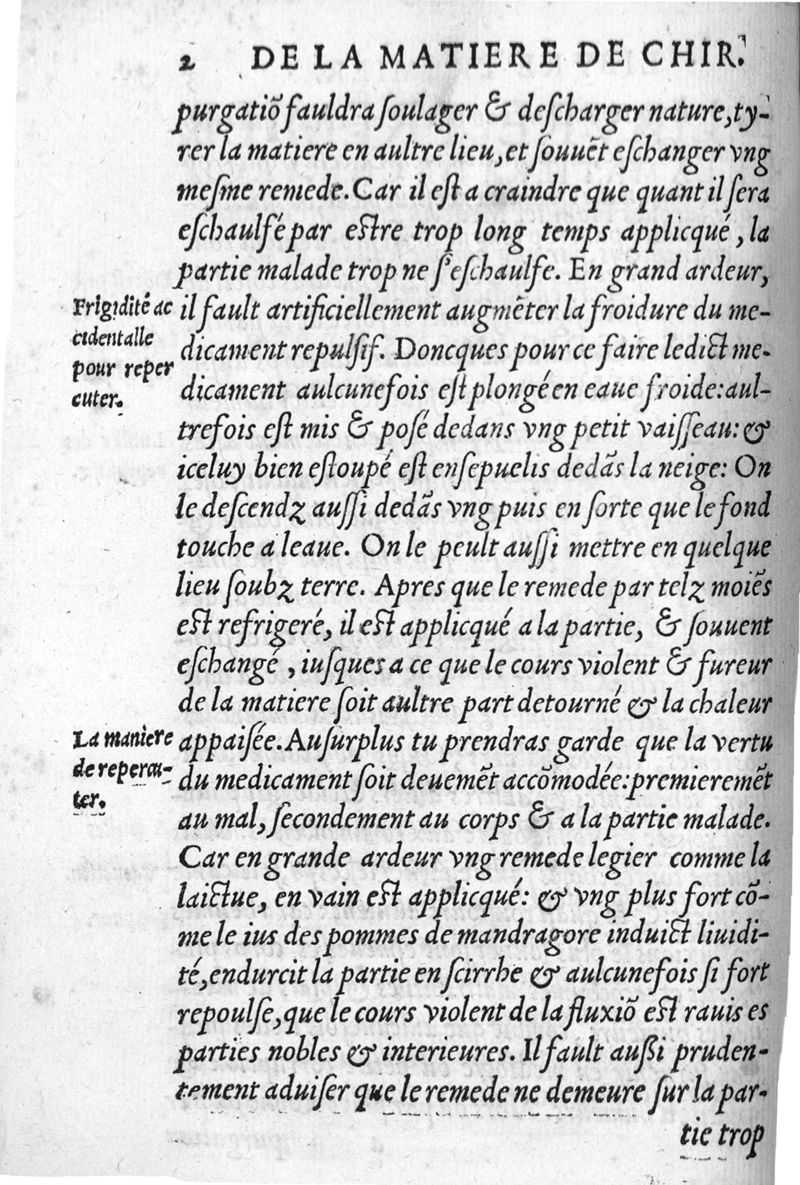 2 DE LA MATIERE DE CHIR.
purgatiõ fauldra ſoulager & deſcharger nature, ty-
rer la matiere en aultre lieu, et ſouuẽt eſchanger vng
meſme remede. Car il eſt a craindre que quant il ſera
eſchaulfé par eſtre trop long temps applicqué, la
partie malade trop ne ſ'eſchaulfe. En grand ardeur,
Frigidité ac
cidentalle
pour reper
cuter.
il fault artificiellement augmẽter la froidure du me-
dicament repulſif. Doncques pour ce faire ledict me-
dicament aulcunefois eſt plongé en eaue froide: aul-
trefois eſt mis & poſé dedans vng petit vaiſſeau: &
iceluy bien eſtoupé eſt enſepuelis dedãs la neige: On
le deſcendz auſſi dedãs vng puis en ſorte que le fond
touche a leaue. On le peult auſſi mettre en quelque
lieu ſoubz terre. Apres que le remede par telz moiẽs
eſt refrigeré, il eſt applicqué a la partie, & ſouuent
eſchangé, iuſques a ce que le cours violent & fureur
de la matiere ſoit aultre part detourné & la chaleur
La maniere
de repercu-
ter.
appaiſée. Auſurplus tu prendras garde que la vertu
du medicament ſoit deuemẽt accõmodée: premieremẽt
au mal, ſecondement au corps & a la partie malade.
Car en grande ardeur vng remede legier comme la
laictue, en vain eſt applicqué: & vng plus fort cõ-
me le ius des pommes de mandragore induict liuidi-
té, endurcit la partie en ſcirrhe & aulcunefois ſi fort
repoulſe, que le cours violent de la fluxiõ eſt rauis es
parties nobles & interieures. Il fault auſſi pruden-
tement aduiſer que le remede ne demeure ſur la par-
tie trop